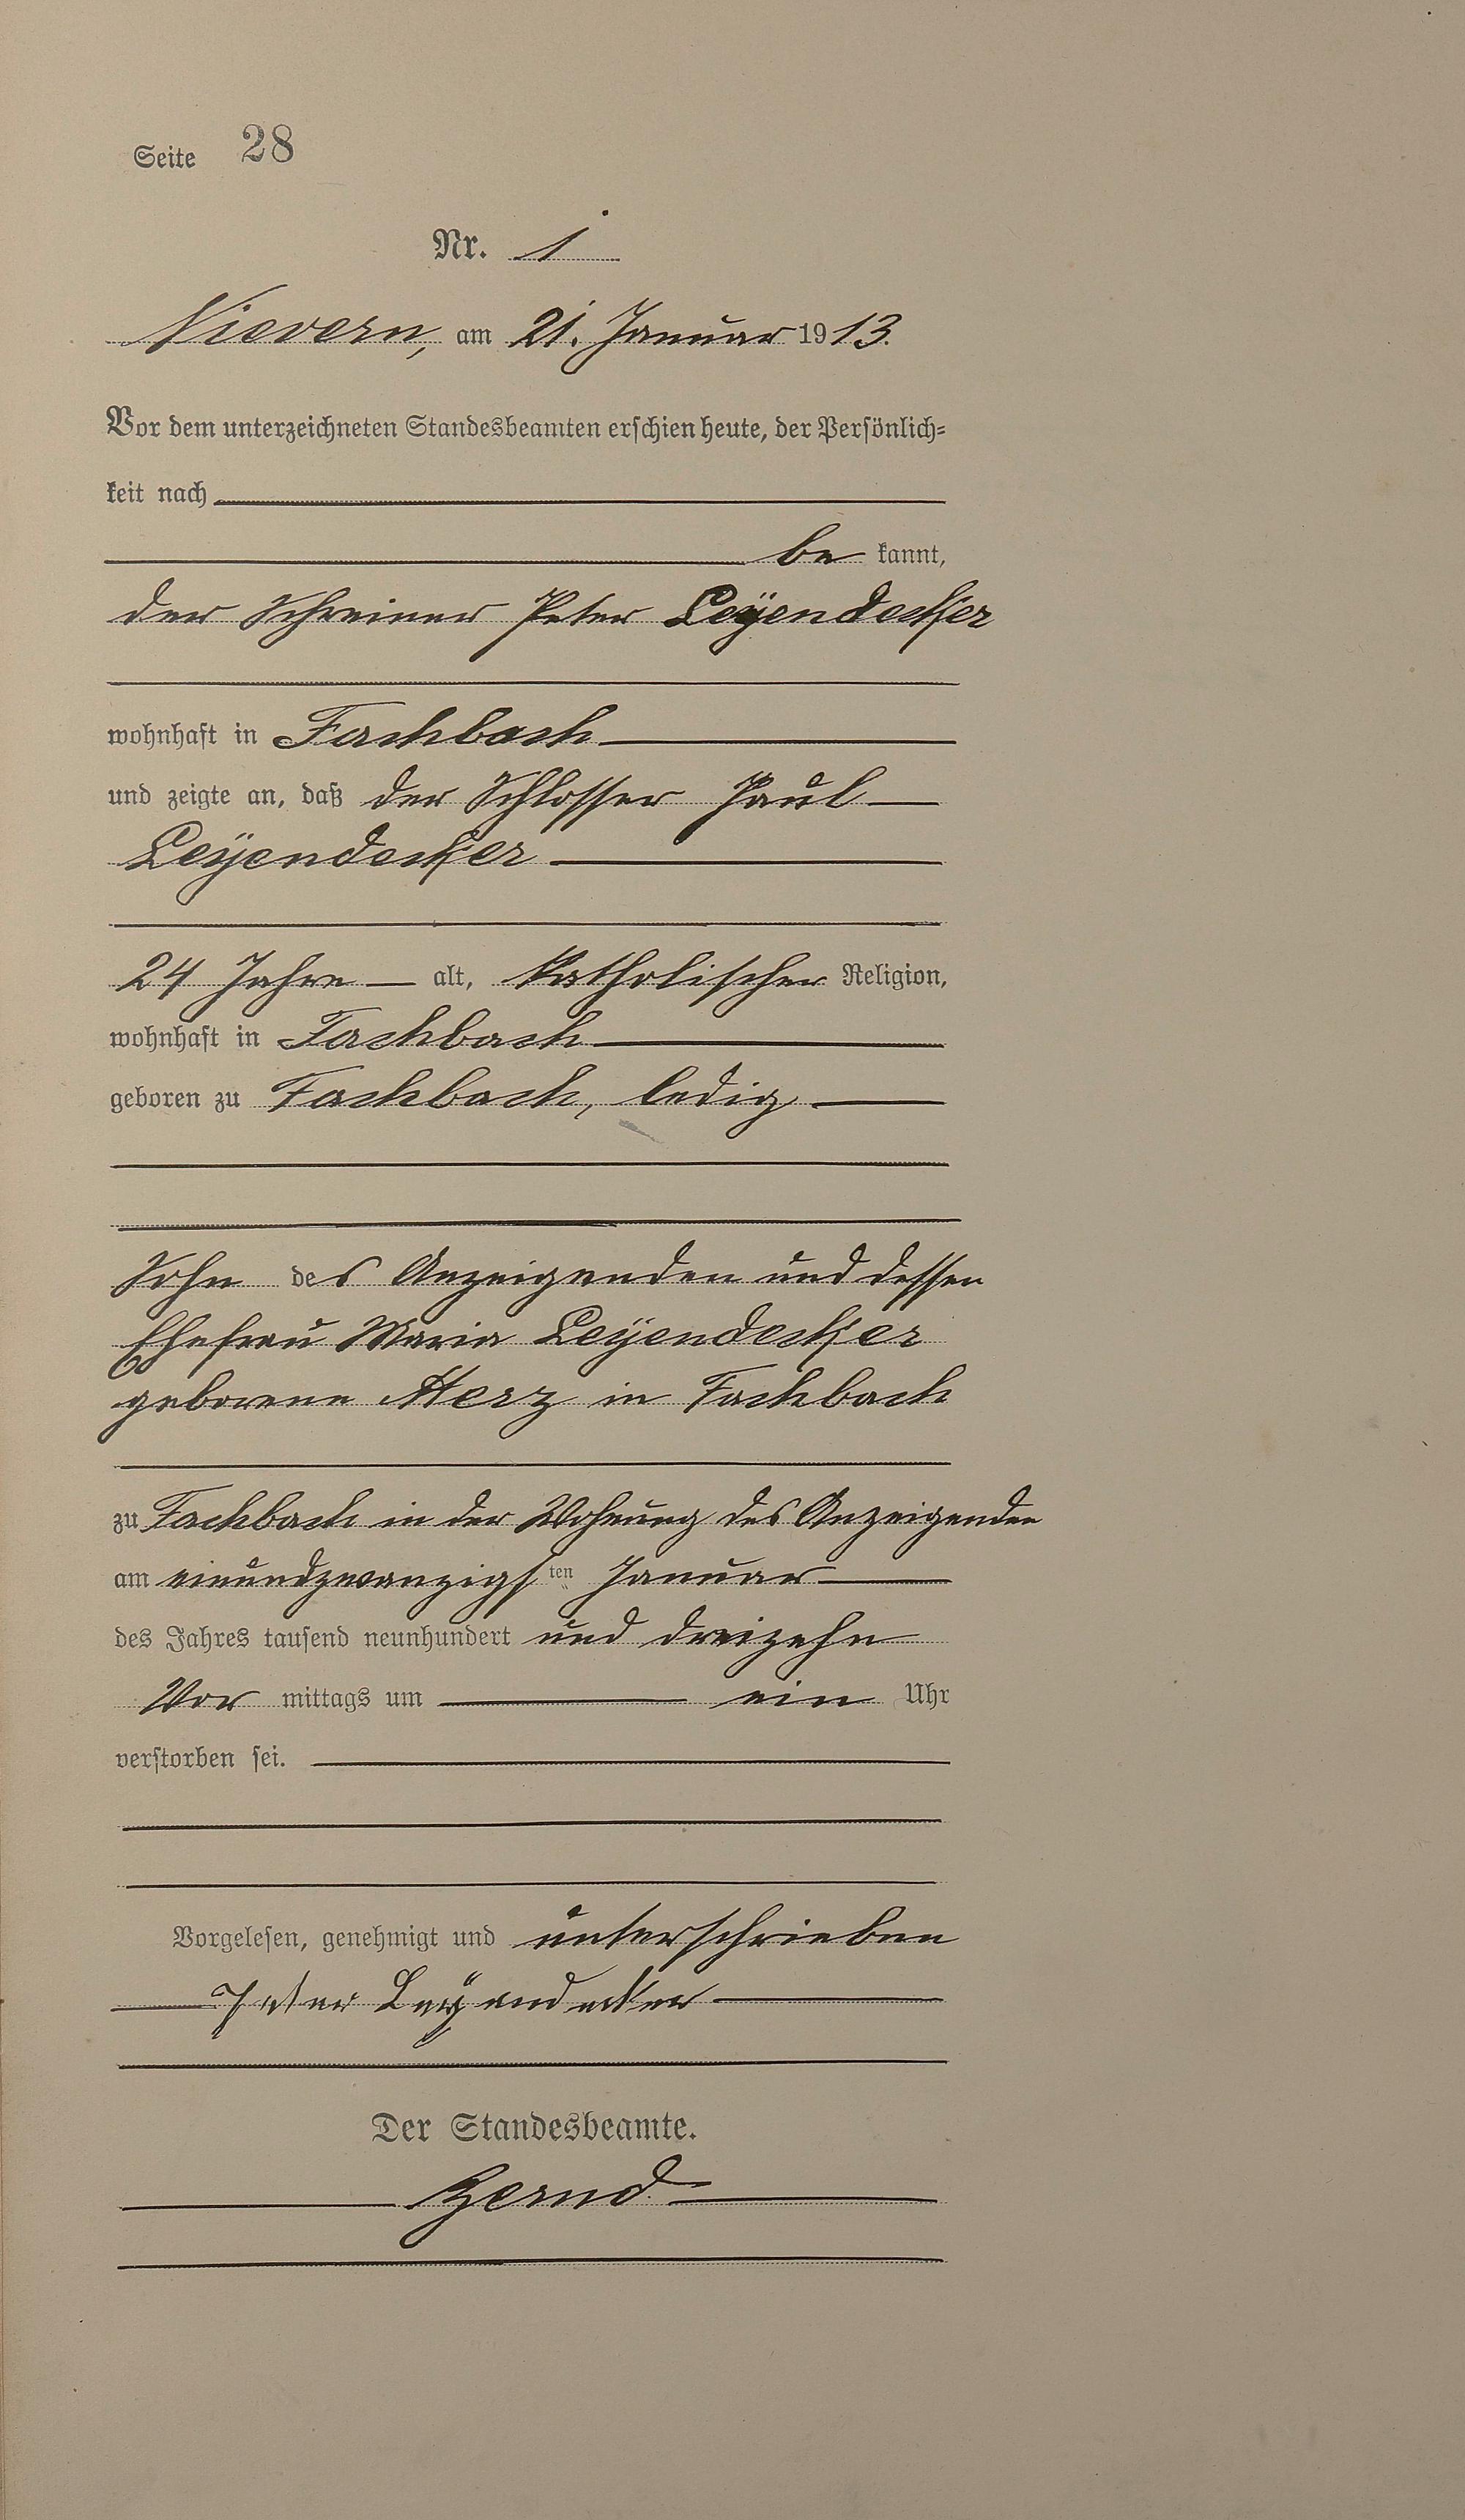 Seite 28
Nr. 1
Nievern, am 21. Januar 1913.
Vor dem unterzeichneten Standesbeamten erschien heute, der Persönlich=
keit nach
be kannt,
der Schreiner Peter Leÿendecker
wohnhaft in Fachbach
und zeigte an, daß der Schlosser Paul
Leÿendecker
24 Jahre alt, katholischer Religion,
wohnhaft in Fachbach
geboren zu Fachbach, ledig
Sohn des Anzeigenden und dessen
Ehefrau Maria Leÿendecker
geborene Herz in Fachbach
zu Fachbach in der Wohnung des Anzeigenden
am einundzwanzigsten Januar
des Jahres tausend neunhundert und dreizehn
Vor mittags um ein Uhr
verstorben sei.
Vorgelesen, genehmigt und unterschrieben
Peter Leÿendecker
Der Standesbeamte.